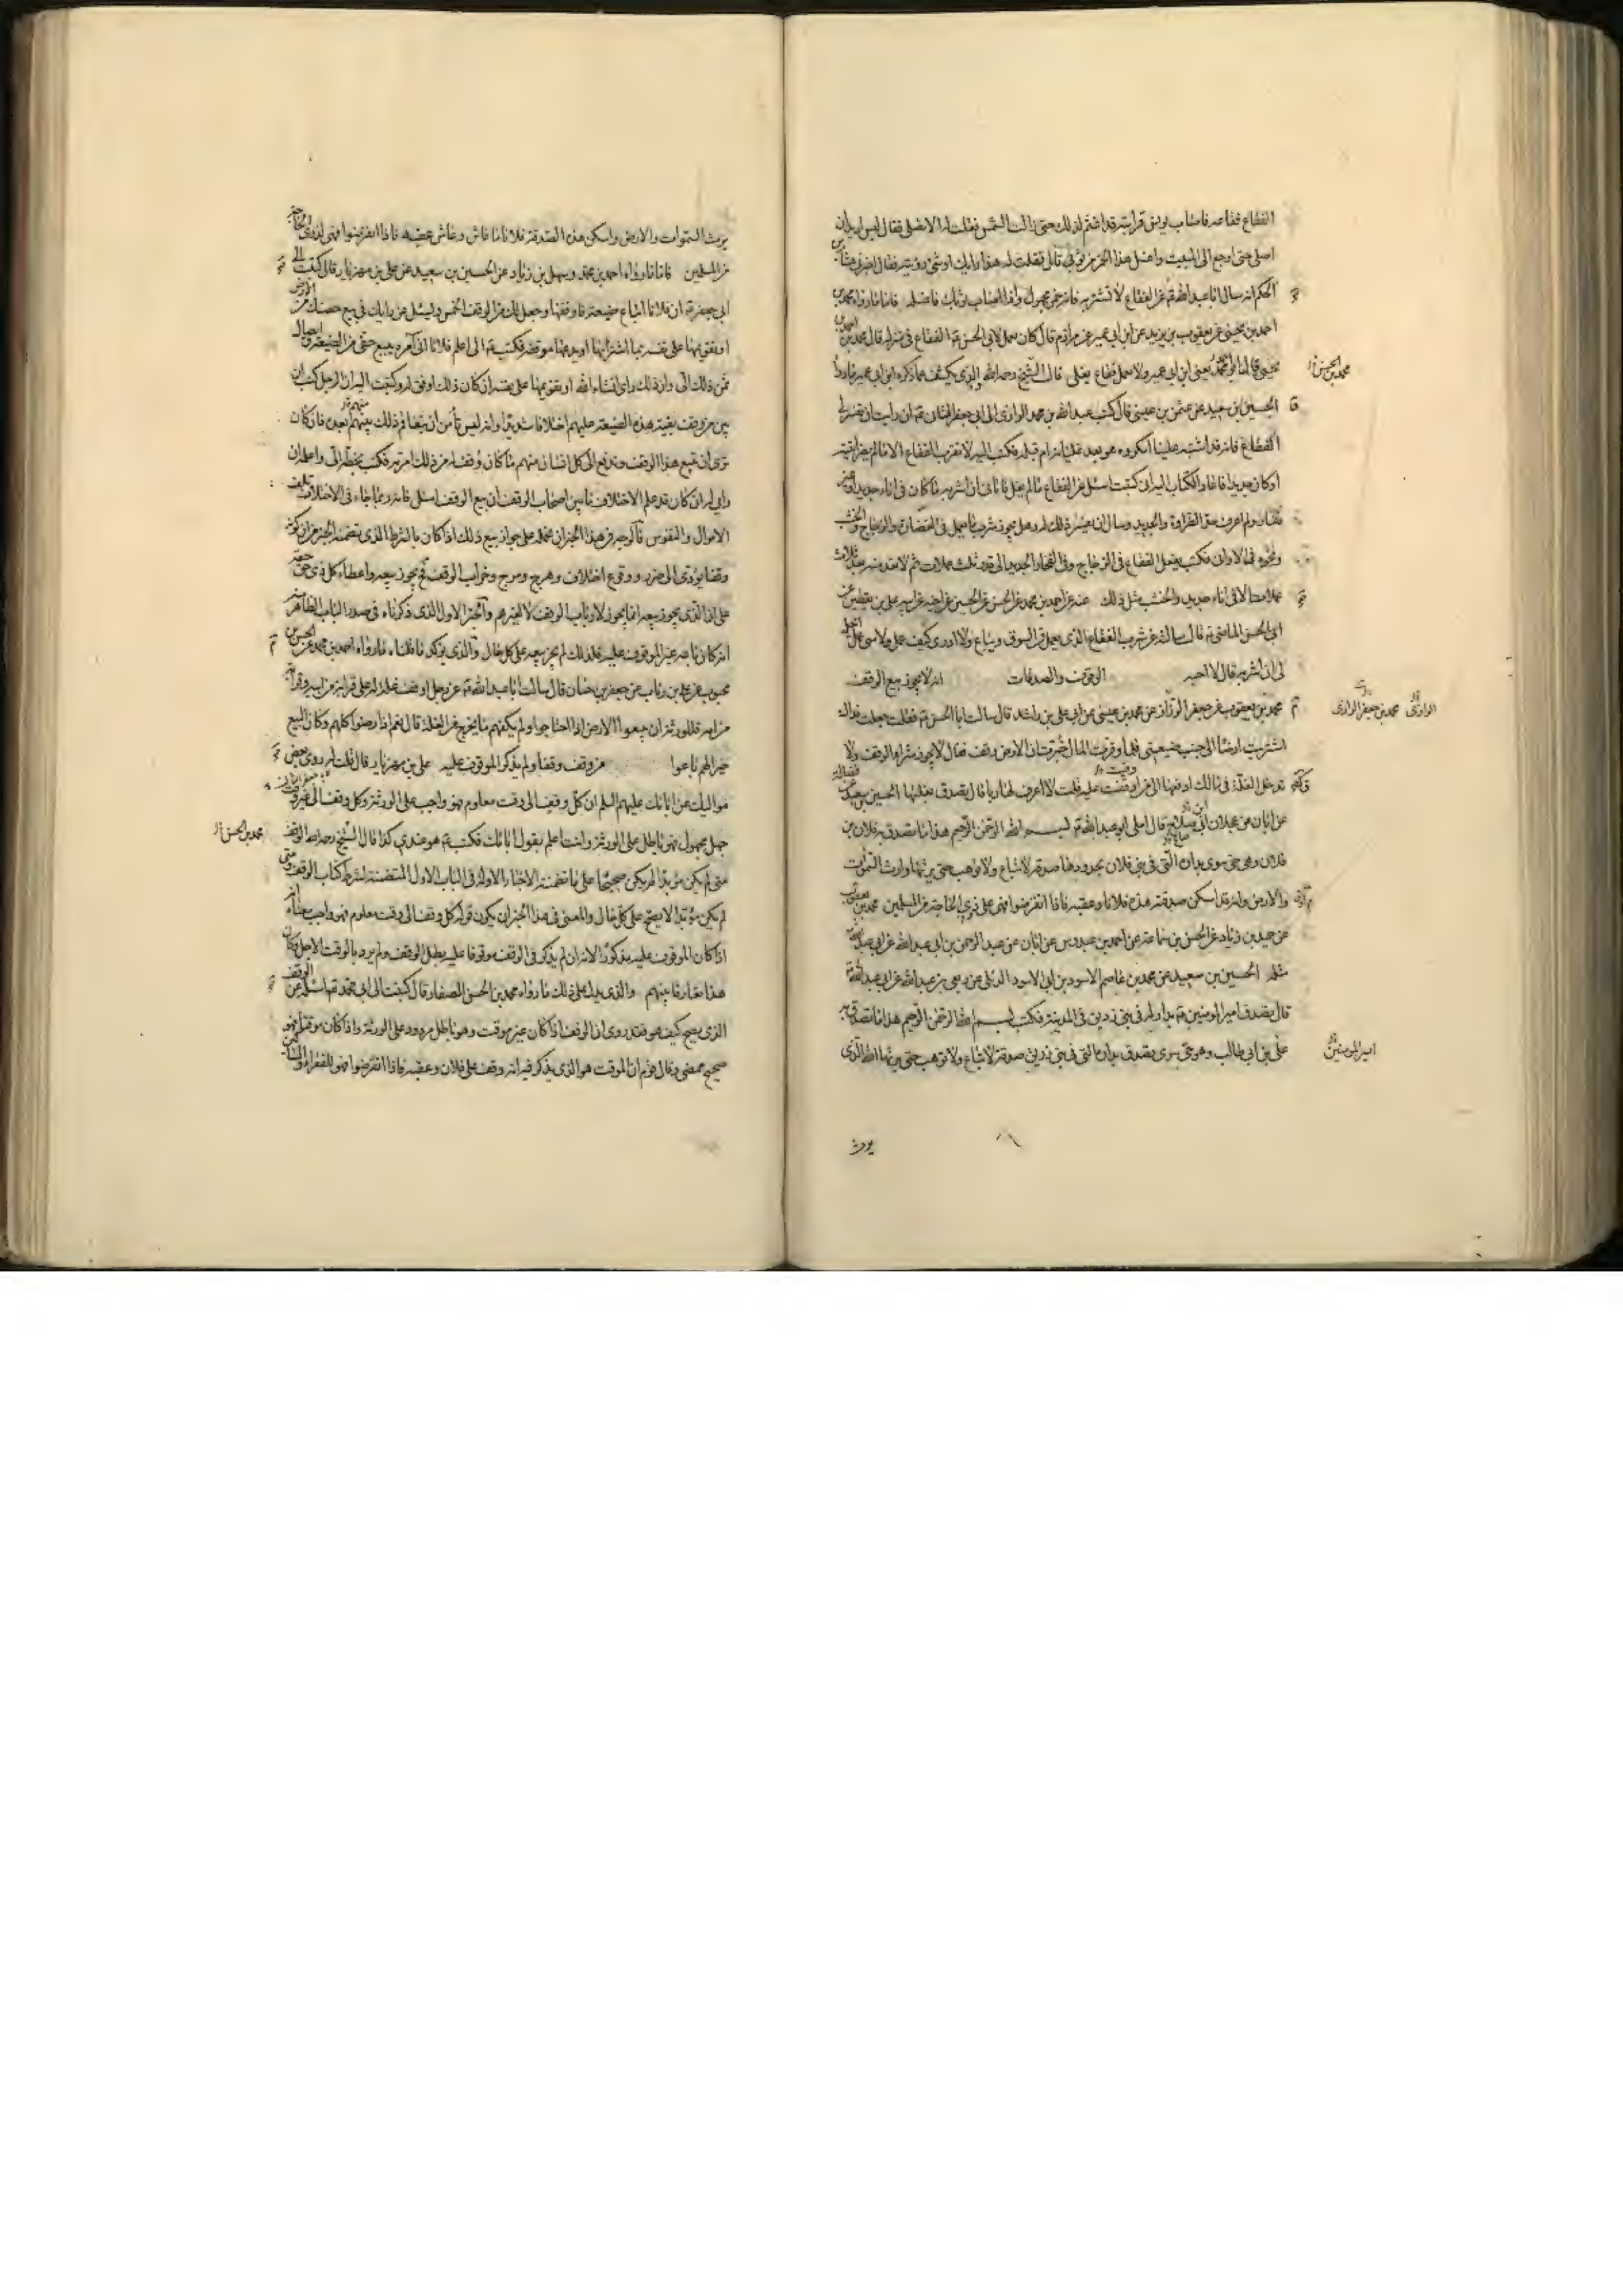 الفقاع فقاصه فاصاب يونس قرابته قد اغتم لذلك حتى زالت الشمس فقلت له الا تصلي فقال ليس اريد ان
اصلي حتى ارجع الى البيت واغسل هذا الخمر من ثوبي قال فقلت له هذا رايك او شيء ترويه فقال اخبرني هشام بن
الحكم انه سال ابا عبد الله عن الفقاع فقال لا تشربه فانه خمر مجهول واذا اصاب ثوبك فاغسله فاما ما رواه محمد بن
احمد بن يحيى عن يعقوب بن يزيد عن ابن ابي عمير عن مرازم قال كان يعمل لابي الحسن الفقاع في منزله قال محمد بن احمد بن
يحيى قال ابو احمد يعني ابن ابي عمير ولا يعمل فقاع يغلي قال الشيخ رحمه الله الذي يكشف عما ذكره ابن ابي عمير ما رواه
الحسين بن سعيد عن عثمن بن عيسى قال كتب عبد الله بن محمد الرازي الى ابي جعفر الثاني ان رايت ان تفسر لي
الفقاع فانه قد اشتبه علينا امكروه هو بعد غليانه ام قبله فكتب اليه لا تقرب الفقاع الا ما لم يضر انيته
او كان جديدا فاعاد الكتاب اليه اني كتبت اسئل عن الفقاع ما لم يغل فاتاني ان اشربه ما كان في اناء جديد او غير
ضار ولم اعرف حد الضراوة والجديد وسال ان يفسر ذلك له وهل يجوز شرب ما يعمل في الغضارة والزجاج والخشب
ونحوه من الاواني فكتب يفعل الفقاع في الزجاج وفي الفخار الجديد الى قدر ثلث عملات ثم لا تعد منه بعد ثلاث
عملات الا في اناء جديد والخشب مثل ذلك عنه عن احمد بن محمد عن الحسن عن الحسين عن اخيه عن ابيه علي بن يقطين عن
ابي الحسن الماضي قال سالته عن شرب الفقاع الذي يعمل في السوق ويباع ولا ادري كيف عمل ولا متى عمل ايحل
لي ان اشربه قال لا احبه الوقوف والصدقات انه لا يجوز بيع الوقف
محمد بن يعقوب عن جعفر الرزاز عن محمد بن عيسى عن ابي علي بن راشد قال سالت ابا الحسن فقلت جعلت فداك
اشتريت ارضا الى جنب ضيعتي فلما وفرت المال خبرت ان الارض وقف فقال لا يجوز شراء الوقف ولا
تدخل الغلة في مالك ادفعها الى من اوقفت عليه قلت لا اعرف لها ربا قال تصدق بغلتها الحسين بن سعيد عن فضالة
عن ابان عن عجلان ابي صالح قال املى ابو عبد الله بسم الله الرحمن الرحيم هذا ما تصدق به فلان بن
فلان وهو حي سوي بداره التي في بني فلان بحدودها صدقة لا تباع ولا توهب حتى يرثها وارث السموات
والارض وانه قد اسكن صدقته هذه فلانا وعقبه فاذا انقرضوا فهي على ذوي الحاجة من المسلمين محمد بن يعقوب
عن حميد بن زياد عن الحسن بن سماعة عن احمد بن عبدوس عن ابان عن عبد الرحمن بن ابي عبد الله عن ابي عبد الله
مثله الحسين بن سعيد عن محمد بن عاصم الاسود بن ابي الاسود الدئلي عن ربعي بن عبد الله عن ابي عبد الله
قال تصدق امير المؤمنين بدار له في بني زريق في المدينة فكتب بسم الله الرحمن الرحيم هذا ما تصدق به
علي بن ابي طالب وهو حي سوي تصدق بداره التي في بني زريق صدقة لا تباع ولا توهب حتى يرثها الله الذي
يرث
محمد بن الحسن
محمد بن جعفر الرازي
امير المومنين
يرث السموات والارض واسكن هذه الصدقة فلانا ما عاش وعاش عقبه فاذا انقرضوا فهي لذوي الحاجة
من المسلمين فاما ما رواه احمد بن محمد وسهل بن زياد عن الحسين بن سعيد عن علي بن مهزيار قال كتبت الى
ابي جعفر ان فلانا ابتاع ضيعة فاوقفها وجعل لك من الوقف الخمس ويسئل عن رايك في بيع حصتك من الارض
او تقويمها على نفسه بما اشتراها او يدعها موقفة فكتب الى اعلم فلانا اني آمره ببيع حقي من الضيعة وايصال
ثمن ذلك الي وان ذلك راي انشاء الله او يقومها على نفسه ان كان ذلك اوفق له وكتبت اليه ان الرجل كتب ان
بين من وقف بقية هذه الضيعة عليهم اختلافا شديدا وانه ليس يأمن ان يتفاقم ذلك بينهم بعده فان كان
ترى ان تبيع هذا الوقف وتدفع الى كل انسان منهم ما كان وقف له من ذلك امرته فكتب بخطه الي واعلمه ان
رايي له ان كان قد علم الاختلاف ما بين اصحاب الوقف ان بيع الوقف امثل فانه ربما جاء في الاختلاف تلف
الاموال والنفوس فالوجه في هذا الخبر ان نحمله على جواز بيع ذلك اذا كان بالشرط الذي تضمنه الخبر من ان كونه
وقفا يؤدي الى ضرر ووقوع اختلاف وهرج ومرج وخراب الوقف فح يجوز بيعه واعطاء كل ذي حق حقه
على ان الذي يجوز بيعه انما يجوز لارباب الوقف لا لغيرهم والخبر الاول الذي ذكرناه في صدر الباب الظاهر منه
انه كان بايعه غير الموقوف عليه فلذلك لم يجز بيعه على كل حال والذي يؤكد ما قلناه ما رواه احمد بن محمد عن الحسن بن
محبوب عن علي بن رئاب عن جعفر بن حنان قال سالت ابا عبد الله عن رجل اوقف غلة له على قرابة من ابيه وقرابة
من امه فللورثة ان يبيعوا الارض اذا احتاجوا ولم يكفهم ما يخرج من الغلة قال نعم اذا رضوا كلهم وكان البيع
خيرا لهم باعوا من وقف وقفا ولم يذكر الموقوف عليه علي بن مهزيار قال قلت له روى بعض
مواليك عن ابائك عليهم السلم ان كل وقف الى وقت معلوم فهو واجب على الورثة وكل وقف الى غير وقت
جهل مجهول فهو باطل على الورثة وانت اعلم بقول ابائك فكتب هو عندي كذا قال الشيخ رحمه الله الوقف
متى لم يكن مؤبدا لم يكن صحيحا على ما تضمنته الاخبار الاولة في الباب الاول المتضمنة لشرط كتاب الوقف ومتى
لم يكن مؤبدا لا يصح على كل حال والمعنى في هذا الخبر ان يكون قوله كل وقف الى وقت معلوم فهو واجب معناه انه
اذا كان الموقوف عليه مذكورا لانه ان لم يذكر في الوقف موقوفا عليه بطل الوقف ولم يرد بالوقت الاجل وكان
هذا تعارفا بينهم والذي يدل على ذلك ما رواه محمد بن الحسن الصفار قال كتبت الى ابي محمد اسئله عن الوقف
الذي يصح كيف هو فقد روي ان الوقف اذا كان غير موقت وهو باطل مردود على الورثة واذا كان موقتا فهو
صحيح ممضى وقال قوم ان الموقت هو الذي يذكر فيه انه وقف على فلان وعقبه فاذا انقرضوا فهو للفقراء والمساكين
محمد بن الحسن